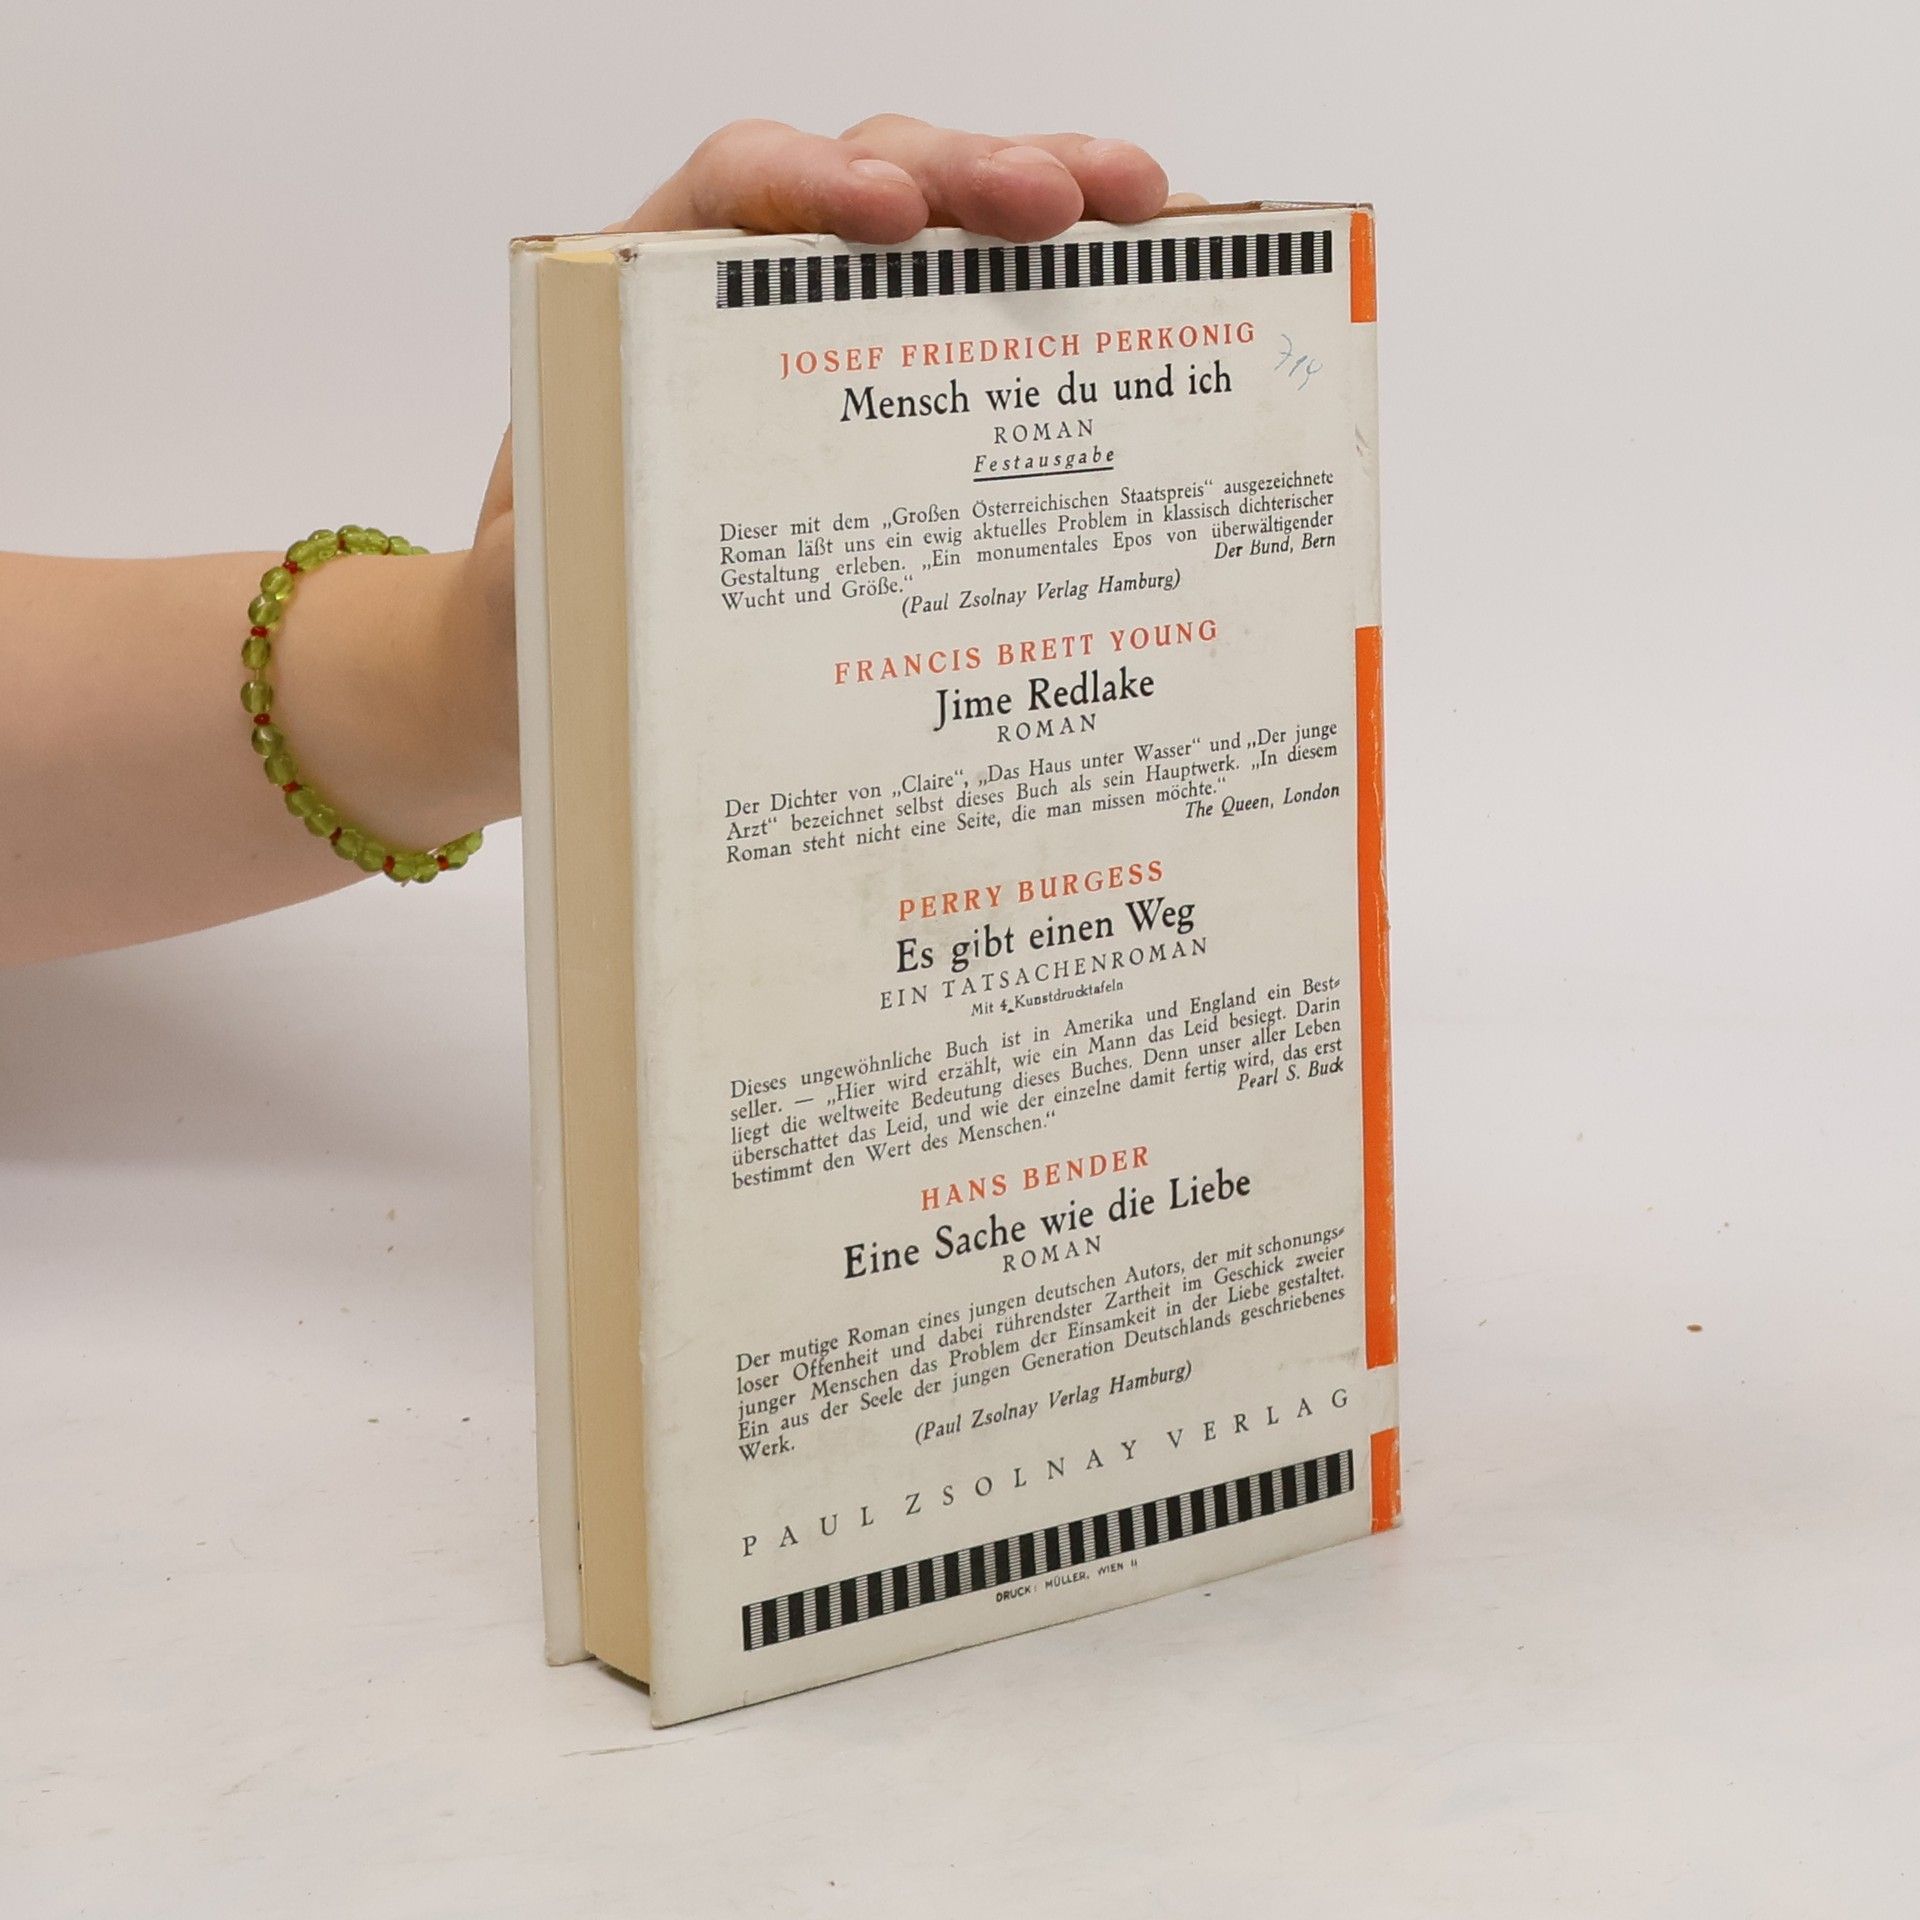 JOSEF FRIEDRICH PERKONIG
Mensch wie du und ich
ROMAN
Festausgabe
714
Dieser mit dem „Großen Österreichischen Staatspreis“ ausgezeichnete
Roman läßt uns ein ewig aktuelles Problem in klassisch dichterischer
Gestaltung erleben. „Ein monumentales Epos von überwältigender
Wucht und Größe.“ Der Bund, Bern
(Paul Zsolnay Verlag Hamburg)
FRANCIS BRETT YOUNG
Jime Redlake
ROMAN
Der Dichter von „Claire“, „Das Haus unter Wasser“ und „Der junge
Arzt“ bezeichnet selbst dieses Buch als sein Hauptwerk. „In diesem
Roman steht nicht eine Seite, die man missen möchte.“
The Queen, London
PERRY BURGESS
Es gibt einen Weg
EIN TATSACHENROMAN
Mit 4 Kunstdrucktafeln
Dieses ungewöhnliche Buch ist in Amerika und England ein Best-
seller. — „Hier wird erzählt, wie ein Mann das Leid besiegt. Darin
liegt die weltweite Bedeutung dieses Buches. Denn unser aller Leben
überschattet das Leid, und wie der einzelne damit fertig wird, das erst
bestimmt den Wert des Menschen.“ Pearl S. Buck
HANS BENDER
Eine Sache wie die Liebe
ROMAN
Der mutige Roman eines jungen deutschen Autors, der mit schonungs-
loser Offenheit und dabei rührendster Zartheit im Geschick zweier
junger Menschen das Problem der Einsamkeit in der Liebe gestaltet.
Ein aus der Seele der jungen Generation Deutschlands geschriebenes
Werk. (Paul Zsolnay Verlag Hamburg)
PAUL ZSOLNAY VERLAG
DRUCK: MÜLLER, WIEN II